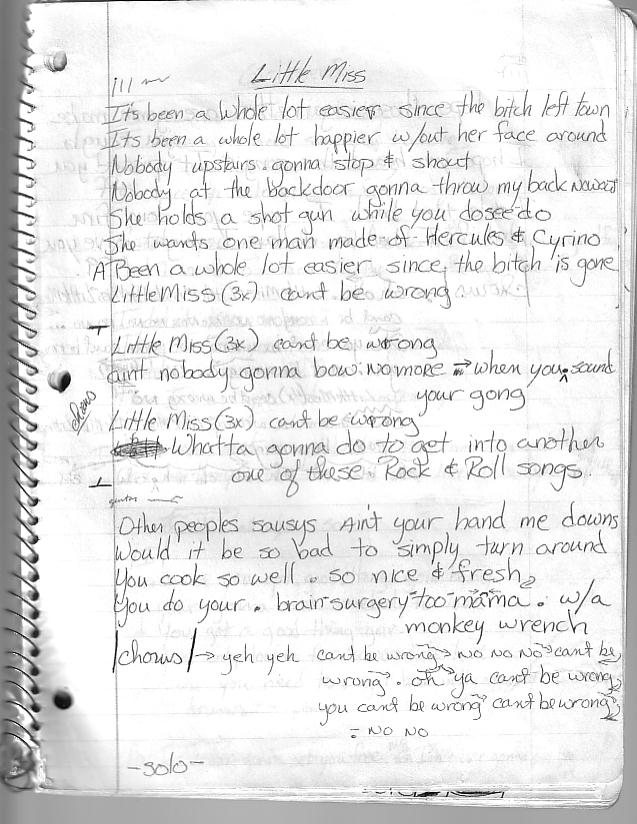 Little Miss
Its been a whole lot easier since the bitch left town
Its been a whole lot happier w/out her face around
Nobody upstairs. gonna stop & shout
Nobody at the backdoor gonna throw my back
She holds a shot gun while you dosee do
She wants one man made of Hercules & Cyrino
A Been a whole lot easier since, the bitch is gone
Little Miss (3x) cant be wrong
Little Miss (3x) cant be wrong
aint nobody gonna bow no more → when you sound
your gong
chorus
Little Miss (3x) cant be wrong
Whatta gonna do to get into another
one of these. Rock & Roll songs.
guitar
Other peoples Ain't your hand me downs
Would it be so bad to simply turn around
You cook so well. so nice & fresh
You do your. brain surgery too mama. w/a
monkey wrench
chorus → yeh yeh cant be wrong no no no can't be
wrong. oh ya cant be wrong
you cant be wrong cant be wrong
= NO NO
-solo-